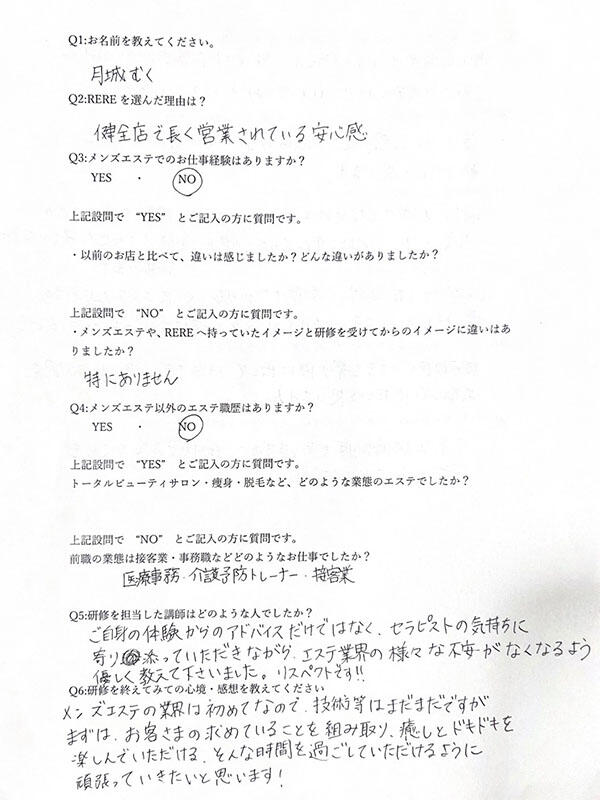 Q1:お名前を教えてください。
月城むく
Q2:RERE を選んだ理由は？
健全店で長く営業されている安心感
Q3:メンズエステでのお仕事経験はありますか？
YES ・ NO
上記設問で “YES” とご記入の方に質問です。
・以前のお店と比べて、違いは感じましたか？どんな違いがありましたか？
上記設問で “NO” とご記入の方に質問です。
・メンズエステや、RERE へ持っていたイメージと研修を受けてからのイメージに違いはあ
りましたか？
特にありません
Q4:メンズエステ以外のエステ職歴はありますか？
YES ・ NO
上記設問で “YES” とご記入の方に質問です。
トータルビューティサロン・痩身・脱毛など、どのような業態のエステでしたか？
上記設問で “NO” とご記入の方に質問です。
前職の業態は接客業・事務職などどのようなお仕事でしたか？
医療事務・介護予防トレーナー・接客業
Q5:研修を担当した講師はどのような人でしたか？
ご自身の体験からのアドバイスだけではなく、セラピストの気持ちに
寄り添っていただきながら、エステ業界の様々な不安がなくなるよう
優しく教えて下さいました。リスペクトです!!
Q6:研修を終えてみての心境・感想を教えてください
メンズエステの業界は初めてなので、技術等はまだまだですが
まずは、お客さまの求めていることを組み取り、癒しとドキドキを
楽しんでいただける、そんな時間を過ごしていただけるように
頑張っていきたいと思います!